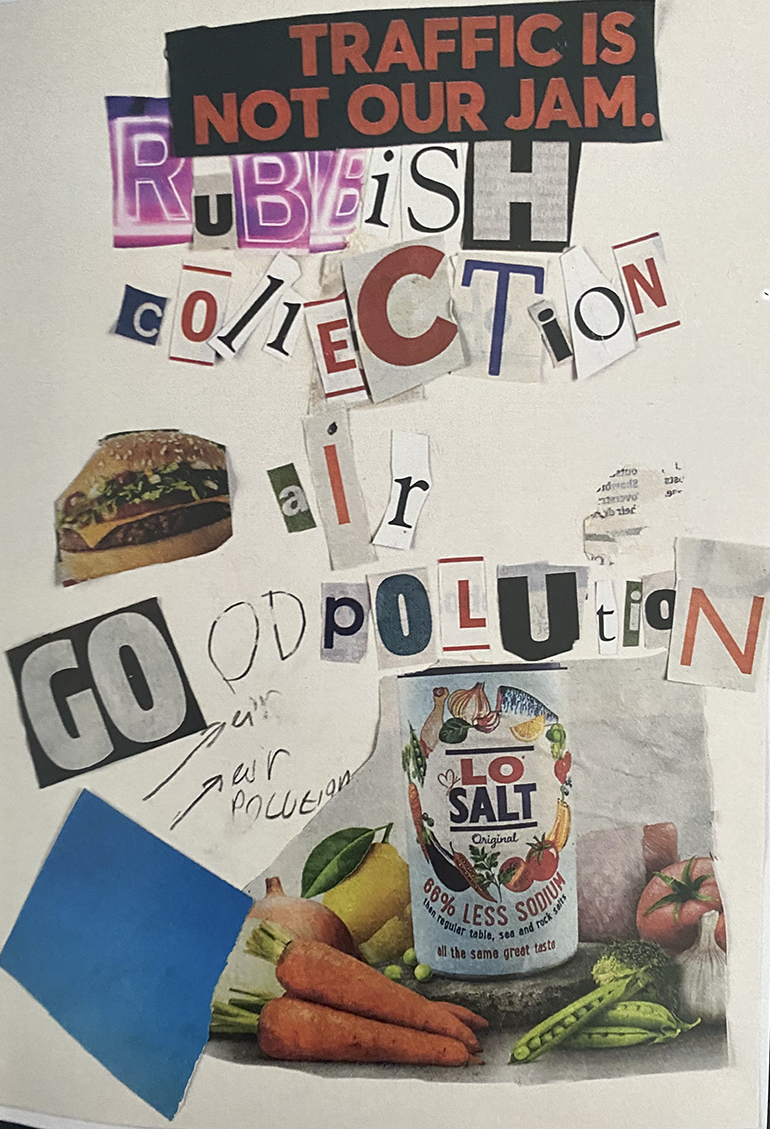 TRAFFIC IS
NOT OUR JAM.
RuBBiSH
COllECTiON
air
GOOD pOLUtioN
air
air
POLLUTION
LO
SALT
Original
66% LESS SODIUM
than regular table, sea and rock salts
all the same great taste